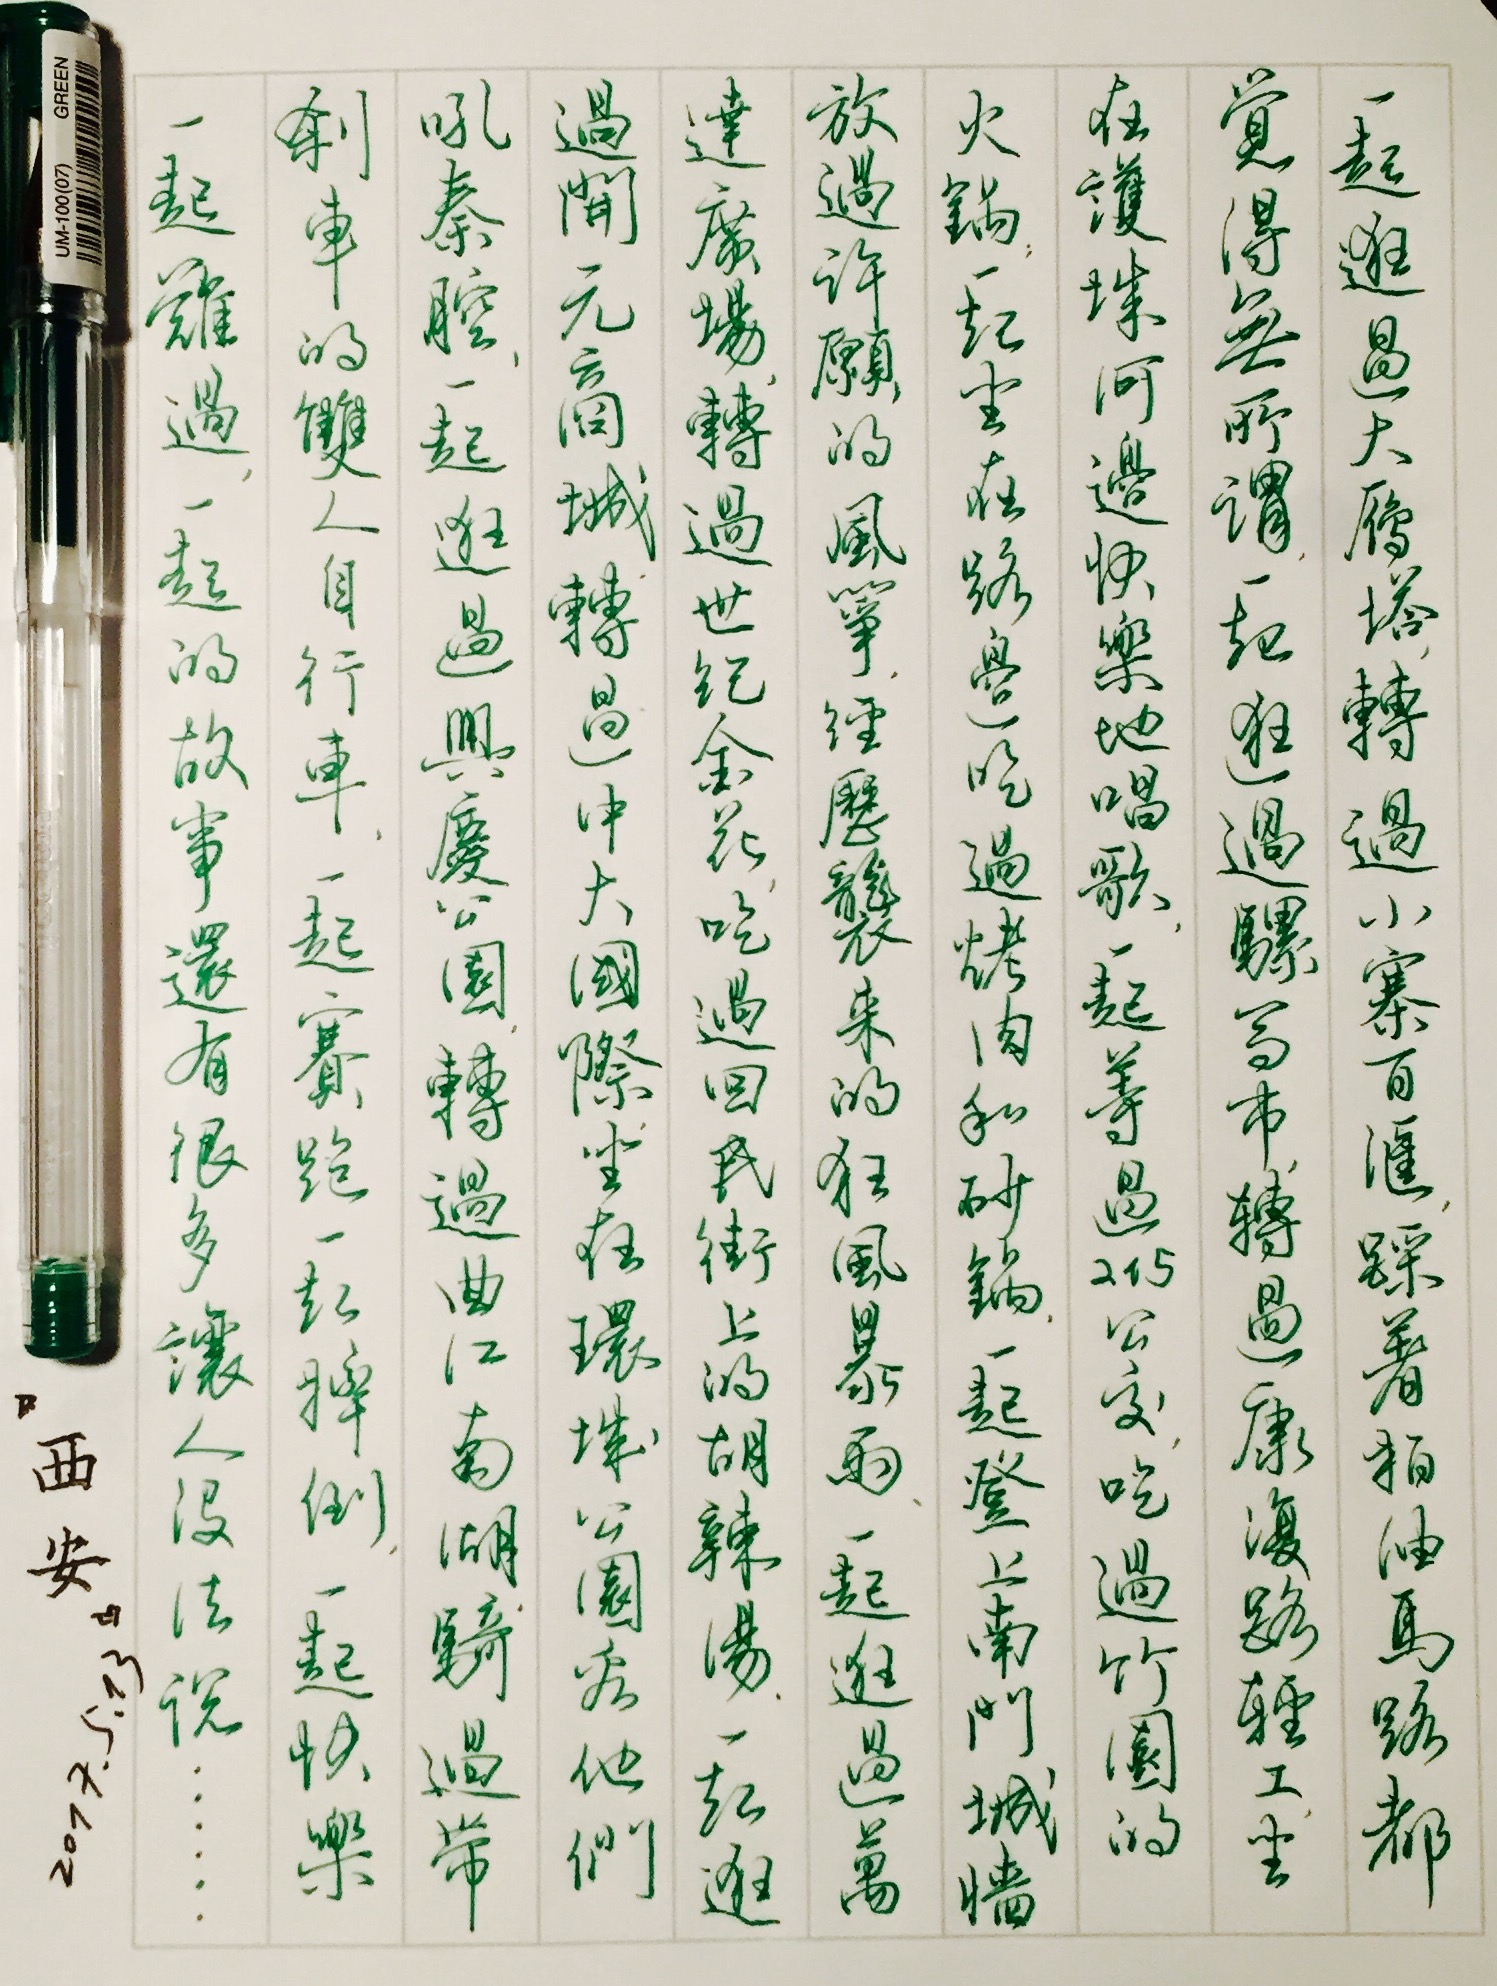 一起逛過大雁塔,轉過小寨百滙,踩着柏油馬路都
覺得無所謂,一起逛過騾馬市,轉過康復路輕工,坐
在護城河邊快樂地唱歌,一起等過215公交,吃過竹園的
火鍋,一起坐在路邊吃過烤肉和砂鍋,一起登上南門城牆
放過許願的風箏,經歷襲来的狂風暴雨,一起逛過萬
達廣場,轉過世紀金花,吃過回民街上的胡辣湯,一起逛
過開元商城,轉過中大國際,坐在環城公園看他們
吼秦腔,一起逛過興慶公園,轉過曲江南湖,騎過帶
刹車的雙人自行車,一起賽跑一起摔倒,一起快樂
一起難過,一起的故事還有很多讓人没法説……
『西安』
2017.5.13
UM-100(07) GREEN